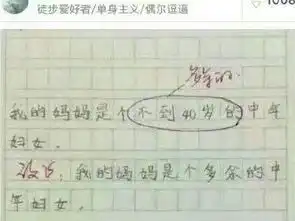 徒步爱好者/单身主义/偶尔逗逼
多余的
我的妈妈是个不到40岁的中年
妇女。
我的妈妈是个多余的中
年妇女。